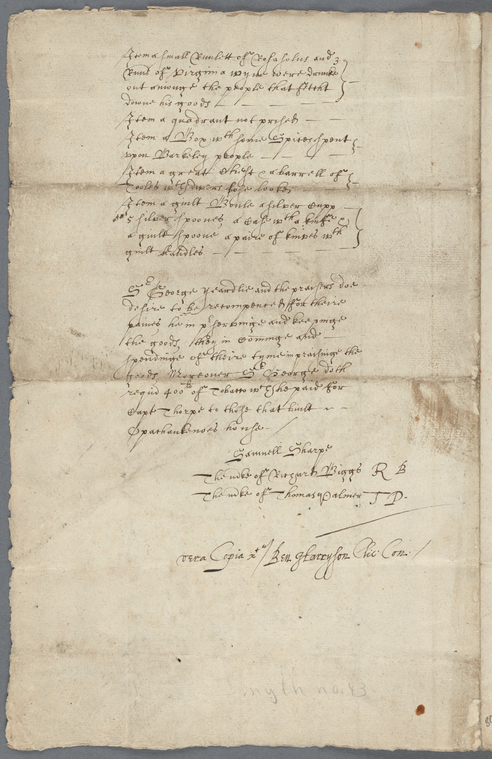 Item a small Runlett of Rosasolus and 3
Runds of Virginia wyne were drunke
out amonge the people that fetcht
downe his goods
Item a quadrant not prised
Item a Box wth some Spices spent
upon Barkeley people
Item a great Chest & a barrell of
Tooles wth divers fose bookes
Item a guilt Boule a silver Cupp
5 silver spoones, a Case wth a knife &
a guilt spoone a paire of knives wth
guilt handles
Sr George Yeardlie and the praisers doe
desire to be recompenced for theire
paines he in pserveinge and keepinge
the goods, they in cominge and
spendinge of theire tyme in praisinge the
goods Moreover Sr George doth
requier 400li of Tobacco wch he paid for
Capt Thorpe to those that built
Opachankenoes howse.
Samuell Sharpe
The mke of Richard Biggs R B
The mke of Thomas Palmer T P.
vera Copia Ben Harryson Clic Con.
myth no. 43